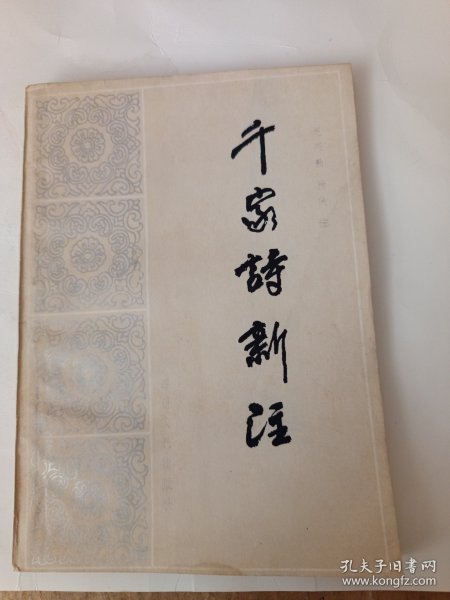 千家詩新注
孔夫子旧书网
www.kongfz.com